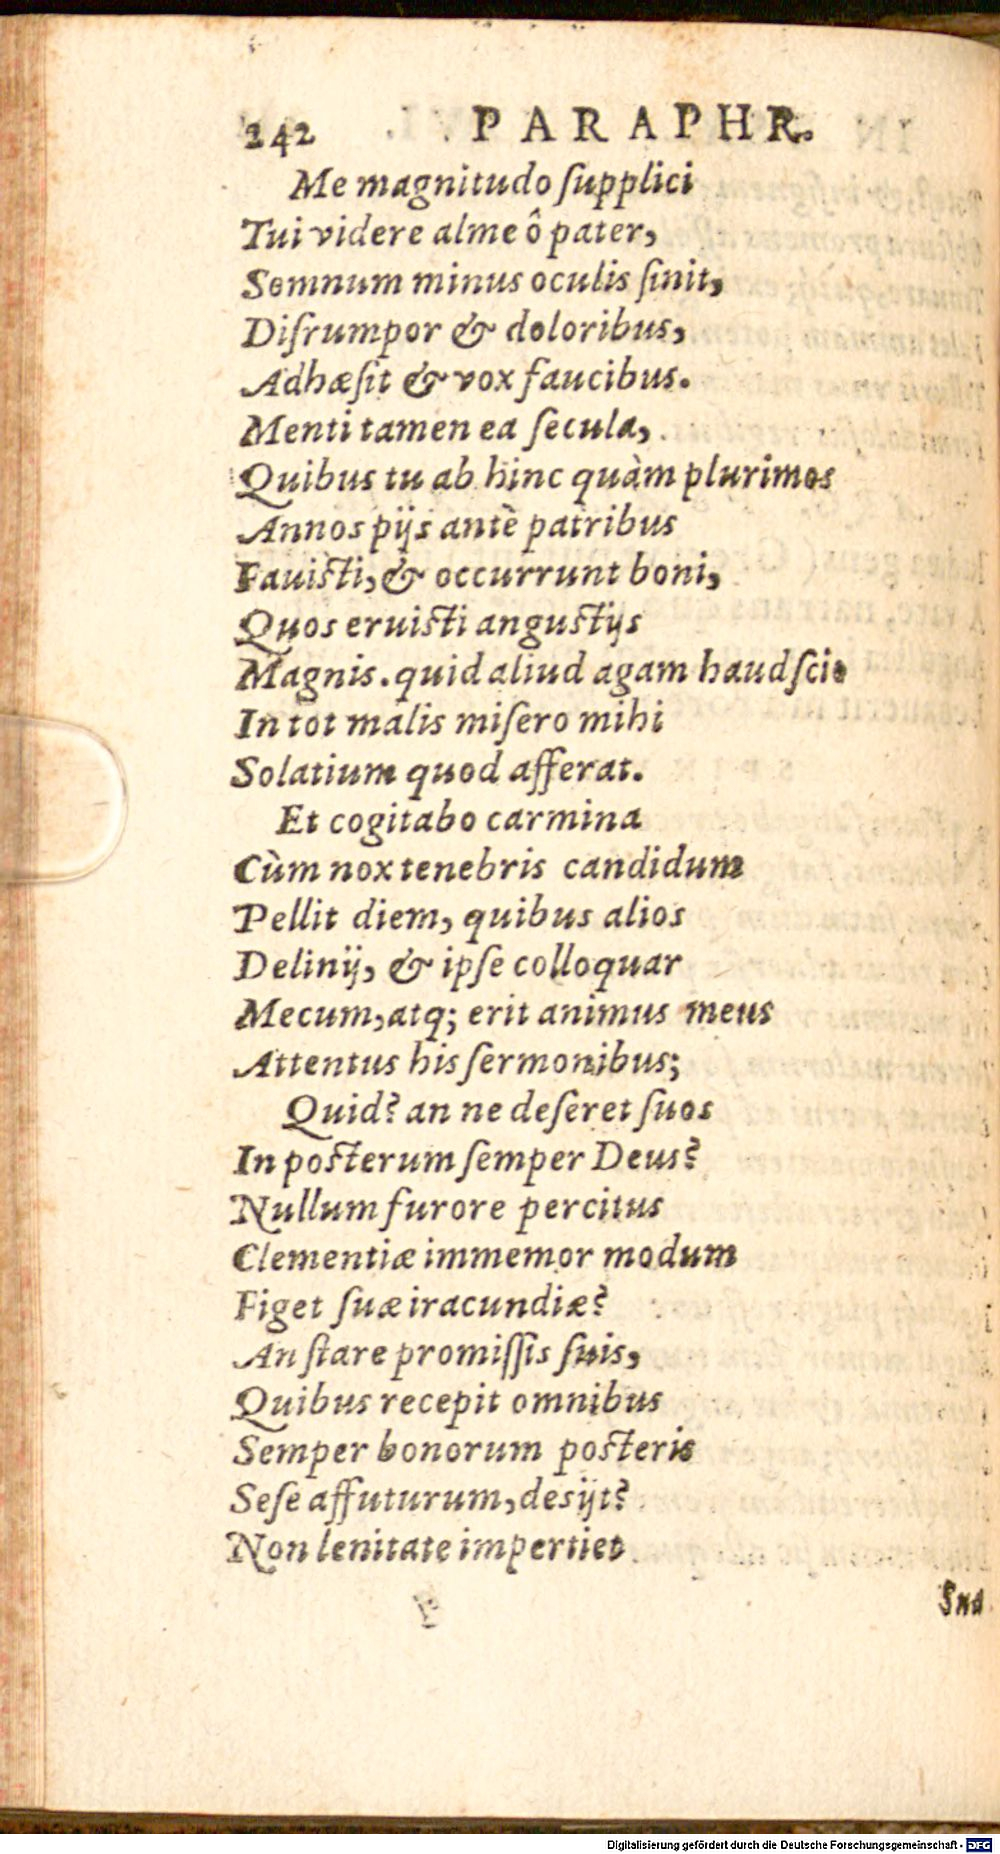 242 PARAPHR.
Me magnitudo ſupplici
Tui videre alme ô pater,
Somnum minus oculis ſinit,
Diſrumpor & doloribus,
Adhæſit & vox faucibus.
Menti tamen ea ſecula,
Quibus tu ab hinc quàm plurimos
Annos pijs antè patribus
Fauiſti, & occurrunt boni,
Quos eruiſti anguſtijs
Magnis. quid aliud agam haud ſcio
In tot malis miſero mihi
Solatium quod afferat.
Et cogitabo carmina
Cùm nox tenebris candidum
Pellit diem, quibus alios
Delinij, & ipſe colloquar
Mecum, atq; erit animus meus
Attentus his ſermonibus;
Quid? an ne deſeret ſuos
In poſterum ſemper Deus?
Nullum furore percitus
Clementiæ immemor modum
Figet ſuæ iracundiæ?
An ſtare promiſſis ſuis,
Quibus recepit omnibus
Semper bonorum poſteris
Seſe affuturum, desijt?
Non lenitate impertiet
Sua
Digitalisierung gefördert durch die Deutsche Forschungsgemeinschaft - DFG